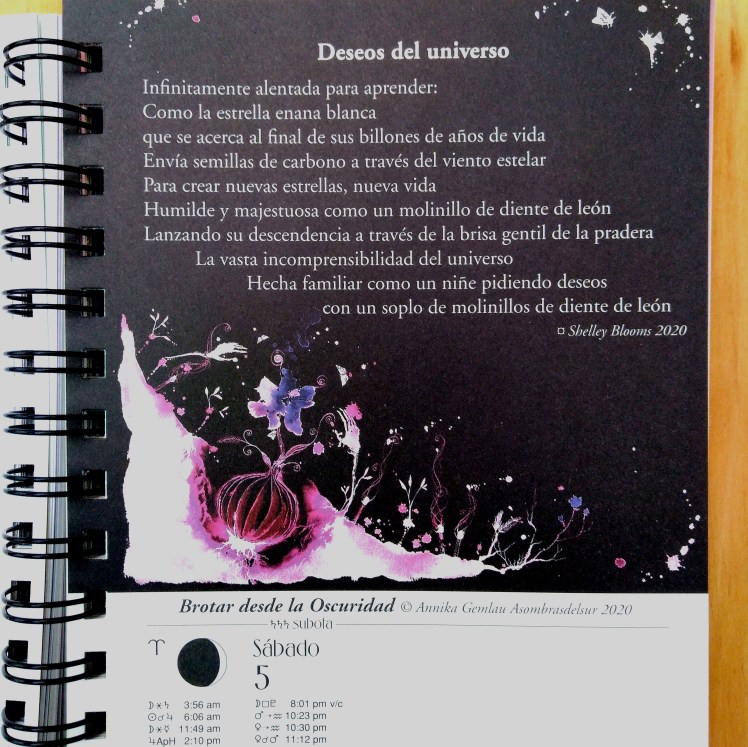 Deseos del universo
Infinitamente alentada para aprender:
Como la estrella enana blanca
que se acerca al final de sus billones de años de vida
Envía semillas de carbono a través del viento estelar
Para crear nuevas estrellas, nueva vida
Humilde y majestuosa como un molinillo de diente de león
Lanzando su descendencia a través de la brisa gentil de la pradera
La vasta incomprensibilidad del universo
Hecha familiar como un niñe pidiendo deseos
con un soplo de molinillos de diente de león
□ Shelley Blooms 2020
Brotar desde la Oscuridad © Annika Gemlau Asombrasdelsur 2020
♄♄♄ subota
♈ Sábado
5
☽⚹♄ 3:56 am
☉☌♃ 6:06 am
☽⚹☿ 11:49 am
♃ApH 2:10 pm
☽□♇ 8:01 pm v/c
♂→♒ 10:23 pm
♀→♒ 10:30 pm
♀☌♂ 11:12 pm